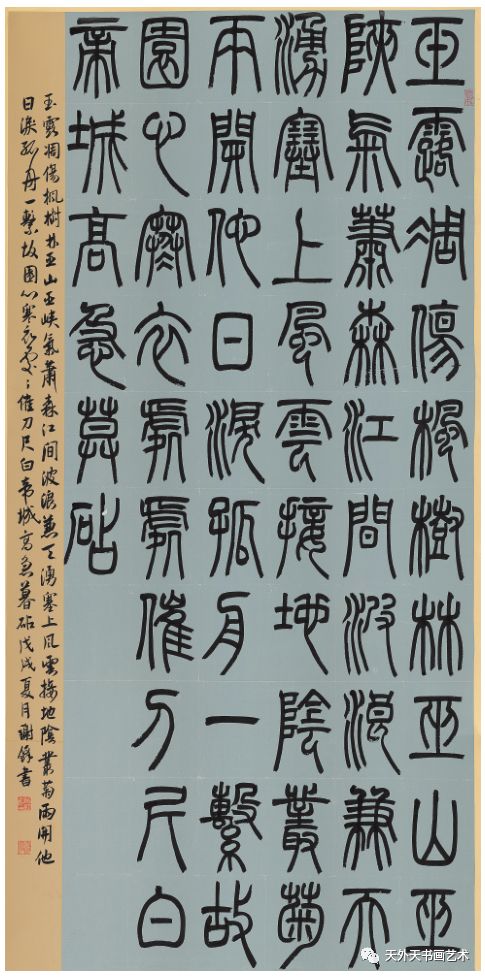 玉露凋傷楓樹林巫山巫
陝氣蕭森江間波浪兼天
湧塞上風雲接地陰叢菊
兩開他日淚孤舟一繫故
園心寒衣處處催刀尺白
帝城高急莫砧
玉露凋傷楓樹林巫山巫峽氣蕭森江間波浪兼天湧塞上风雲接地陰叢菊兩開他
日淚孤舟一繫故園心寒衣處々催刀尺白帝城高急暮砧戊戌夏月謝書
天外天书画艺术